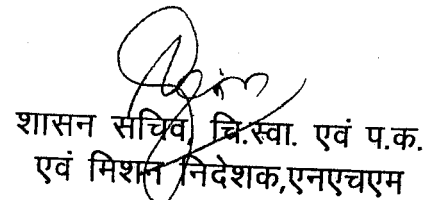 शासन सचिव, चि.स्वा. एवं प.क.
एवं मिशन निदेशक,एनएचएम